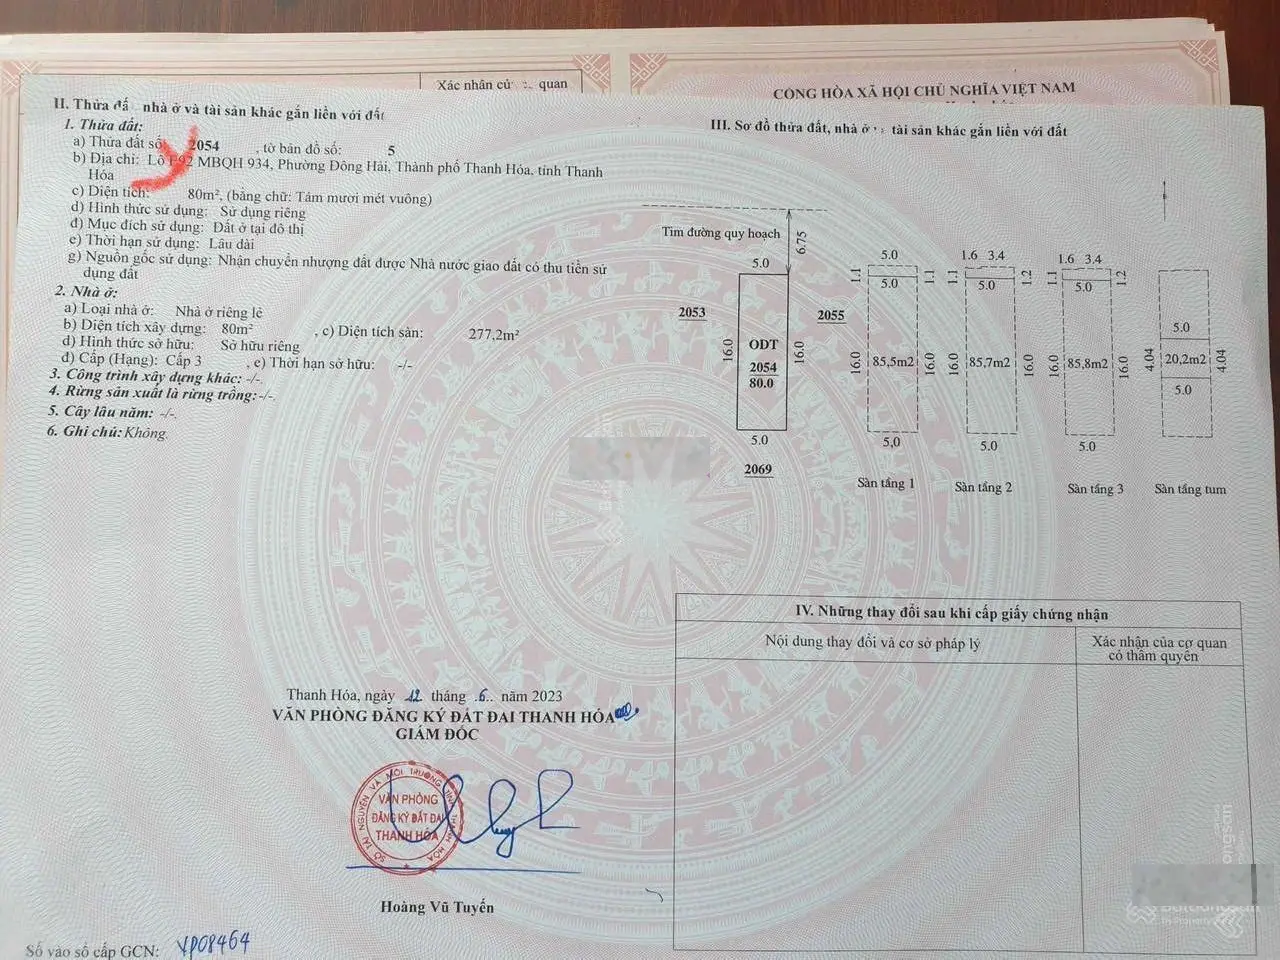 Xác nhận củ quan
CỘNG HÒA XÃ HỘI CHỦ NGHĨA VIỆT NAM
II. Thửa đấ nhà ở và tài sản khác gắn liền với đất
1. Thửa đất:
a) Thửa đất số: 2054 , tờ bản đồ số: 5
b) Địa chỉ: Lô F92 MBQH 934, Phường Đông Hải, Thành phố Thanh Hóa, tỉnh Thanh
Hóa
c) Diện tích: 80m², (bằng chữ: Tám mươi mét vuông)
d) Hình thức sử dụng: Sử dụng riêng
đ) Mục đích sử dụng: Đất ở tại đô thị
e) Thời hạn sử dụng: Lâu dài
g) Nguồn gốc sử dụng: Nhận chuyển nhượng đất được Nhà nước giao đất có thu tiền sử
dụng đất
2. Nhà ở:
a) Loại nhà ở: Nhà ở riêng lẻ
b) Diện tích xây dựng: 80m² , c) Diện tích sàn: 277,2m²
d) Hình thức sở hữu: Sở hữu riêng
đ) Cấp (Hạng): Cấp 3 , e) Thời hạn sở hữu: -/-
3. Công trình xây dựng khác: -/-.
4. Rừng sản xuất là rừng trồng:-/-.
5. Cây lâu năm: -/-.
6. Ghi chú: Không.
Thanh Hóa, ngày 12 tháng .6.. năm 2023
VĂN PHÒNG ĐĂNG KÝ ĐẤT ĐAI THANH HÓA
GIÁM ĐỐC
SỞ TÀI NGUYÊN VÀ MÔI TRƯỜNG TỈNH THANH HÓA
VĂN PHÒNG
ĐĂNG KÝ ĐẤT ĐAI
THANH HÓA
Hoàng Vũ Tuyến
Số vào sổ cấp GCN: VP08464
III. Sơ đồ thửa đất, nhà ở tài sản khác gắn liền với đất
Tim đường quy hoạch
6.75
5.0
2053
2055
16.0
16.0
ODT
2054
80.0
5.0
2069
5.0
1.1
1.1
5.0
16.0
85,5m2
16.0
5,0
Sàn tầng 1
1.6 3.4
1.1
1.2
5.0
16.0
85,7m2
16.0
5.0
Sàn tầng 2
1.6 3.4
1.1
1.2
5.0
16.0
85,8m2
16.0
5.0
Sàn tầng 3
5.0
4.04
20,2m2
4.04
5.0
Sàn tầng tum
IV. Những thay đổi sau khi cấp giấy chứng nhận
Nội dung thay đổi và cơ sở pháp lý
Xác nhận của cơ quan
có thẩm quyền
Batdongsan
by PropertyGuru